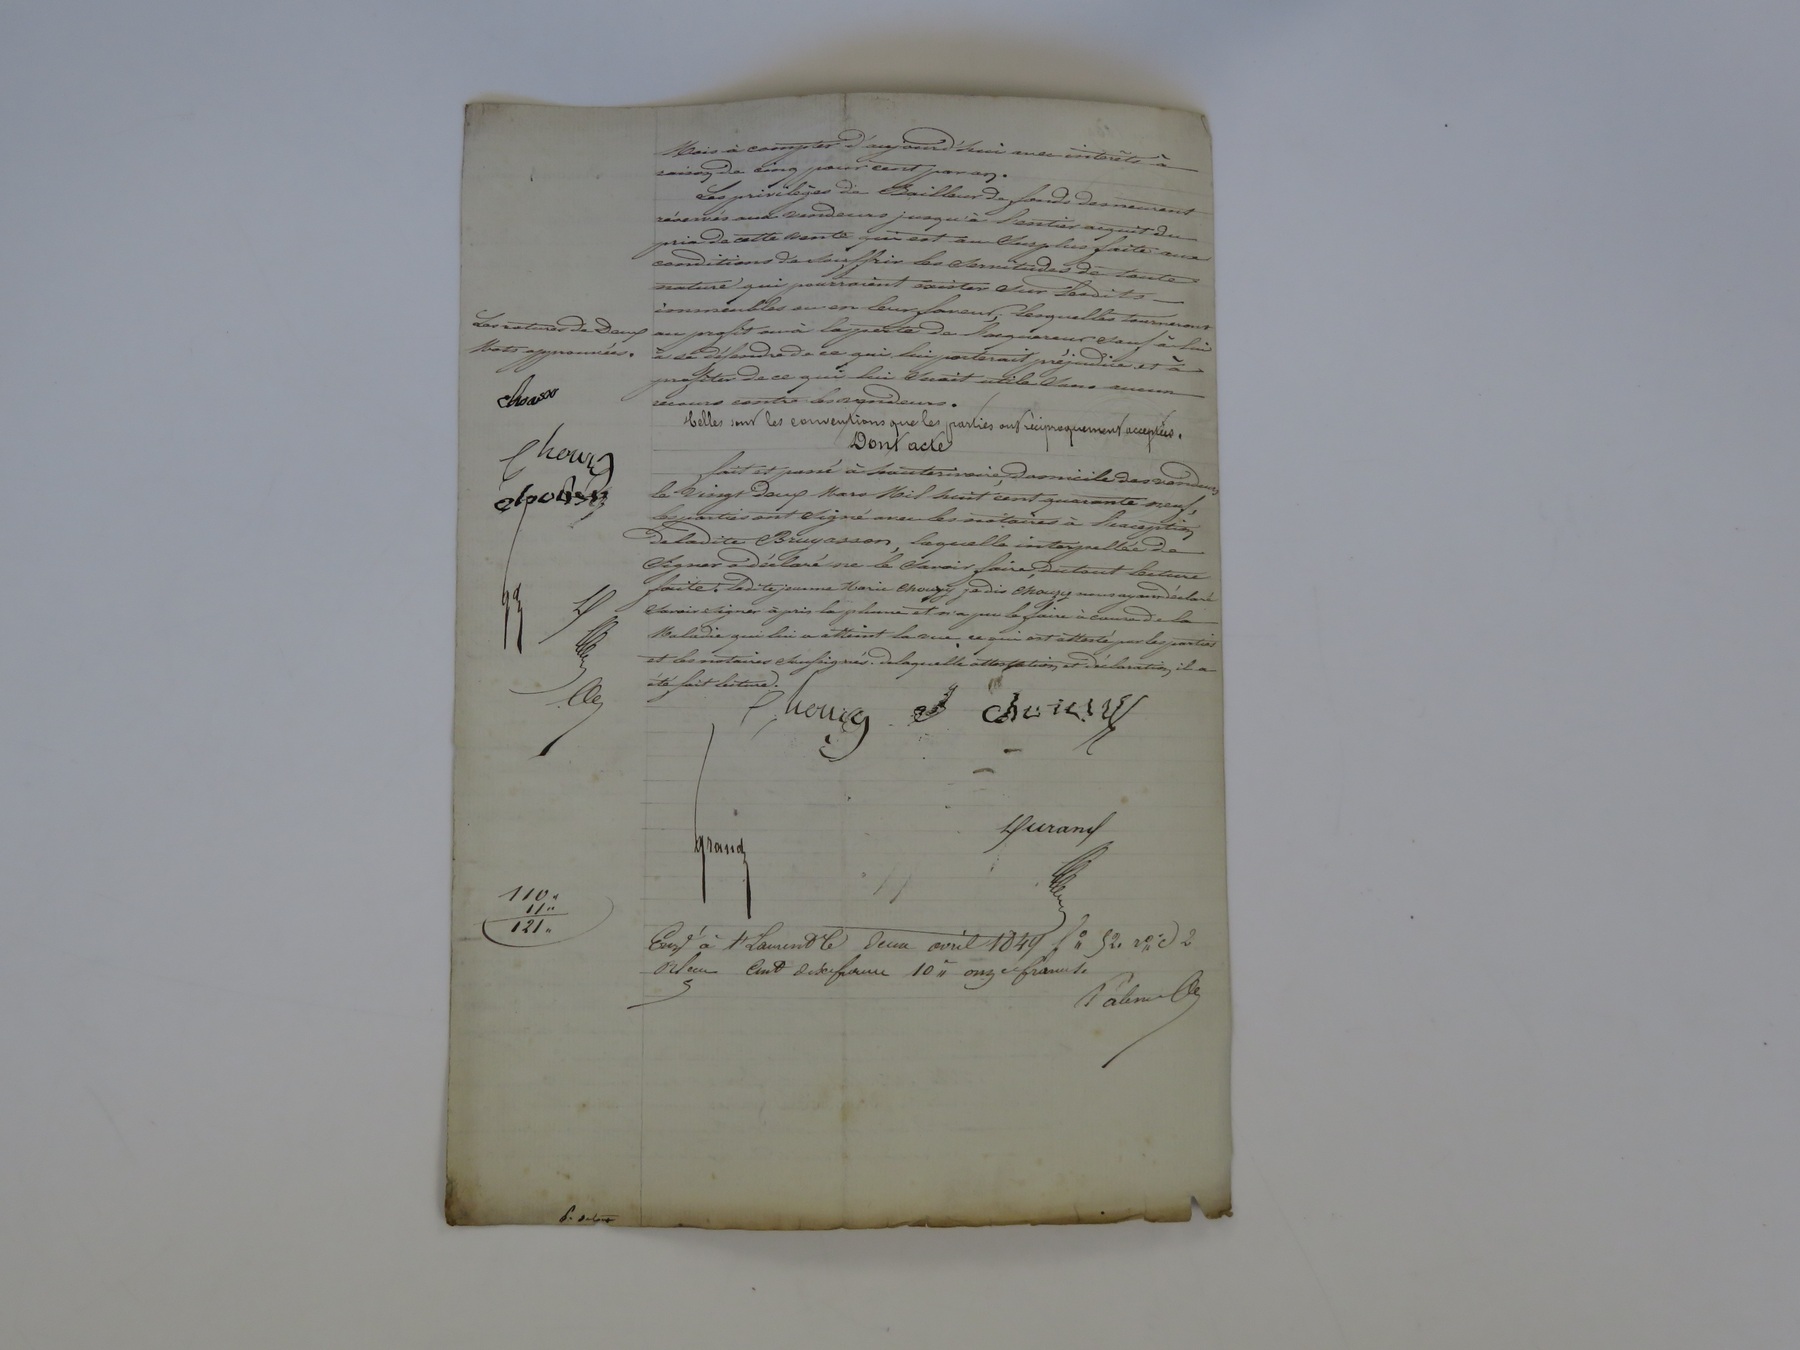 Mois à compter d'aujourd'hui avec intérêts à
raison de cinq pour cent par an.
Les privilèges de Bailleur de fonds demeurent
réservés aux vendeurs jusqu'à l'entier acquit du
prix de cette vente qui est au surplus faite aux
conditions de souffrir les servitudes de toute
nature qui pourraient exister sur lesdits
immeubles ou en leur faveur, lesquelles tourneront
au profit ou à la perte de l'acquéreur sauf à lui
à se défendre de ce qui lui porterait préjudice et à
profiter de ce qui lui serait utile sans aucun
recours contre les vendeurs.
Telles sont les conventions que les parties ont réciproquement acceptées.
Dont acte
fait et passé à domicile des vendeurs
le Vingt deux Mars Mil huit cent quarante neuf,
les parties ont signé avec les notaires à l'exception
de ladite Bruyasson, laquelle interpellée de
signer a déclaré ne le savoir faire, du tout lecture
faite. ladite jeanne Marie chouzy je dis chouzy nous ayant déclaré
savoir signer à pris la plume et n'a pu le faire à cause de la
Maladie qui lui a atteint la vue, ce qui est attesté par les parties
et les notaires soussignés. de laquelle attestation et déclaration il a
été fait lecture.
Les ratures de Deux
Mots approuvées.
Chouzy
Chouzy
grand
Durand
110"
11"
121"
Enr à St Laurent le deux avril 1849 fo 52 ro c 2
Reçu cent dix francs 10e onze francs